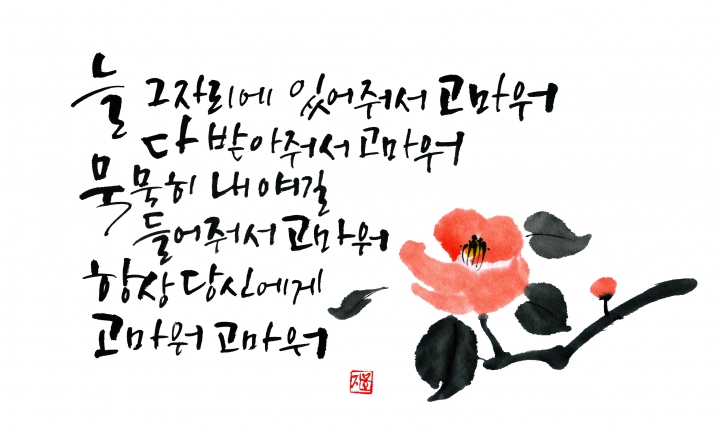 늘 그자리에 있어줘서 고마워
다 받아줘서 고마워
묵묵히 내 얘길
들어줘서 고마워
항상 당신에게
고마워 고마워